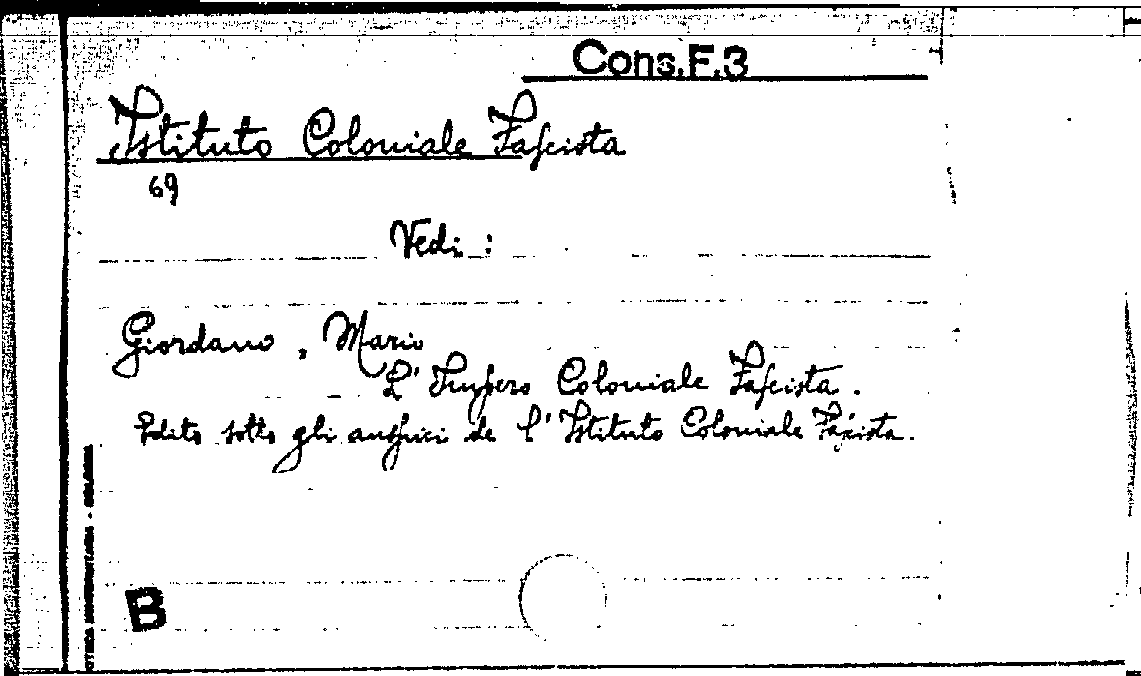 Cons.F.3
Istituto Coloniale Fascista
69
Vedi :
Giordano, Mario
L'Impero Coloniale Fascista.
Edito sotto gli auspici de l'Istituto Coloniale Fascista.
B